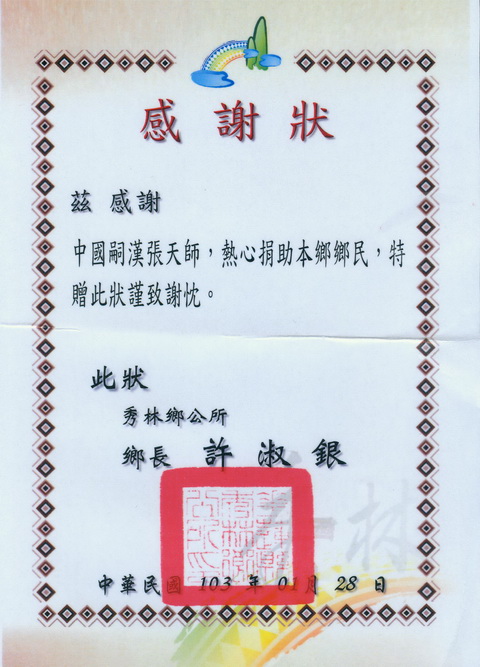 感謝狀
茲 感謝
中國嗣漢張天師，熱心捐助本鄉鄉民，特
贈此狀謹致謝忱。
此狀
秀林鄉公所
鄉長 許淑銀
中華民國 103 年 01 月 28 日